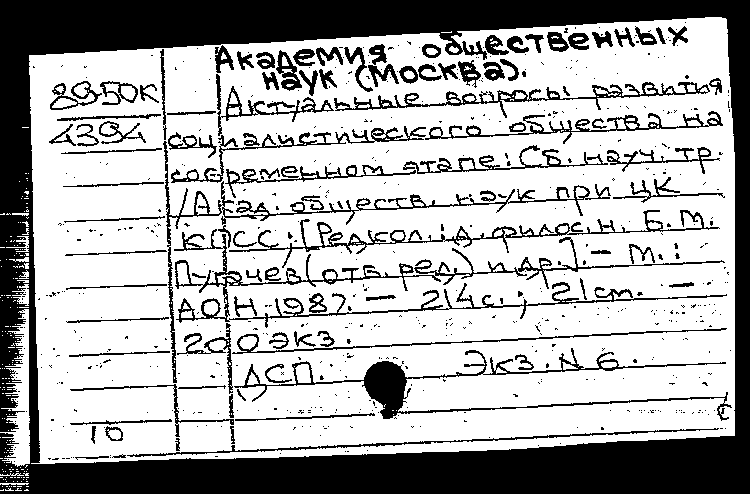 Академия общественных
наук (Москва).
8950К
Актуальные вопросы развития
4394
социалистического общества на
современном этапе: Сб. науч. тр.
/Акад. обществ. наук при ЦК
КПСС; [Редкол.: д. филос. н. Б.М.
Пугачев (отв. ред.) и др.]. – М.:
АОН, 1987. – 214с.; 21см. –
200экз.
ДСП. Экз. N 6.
10